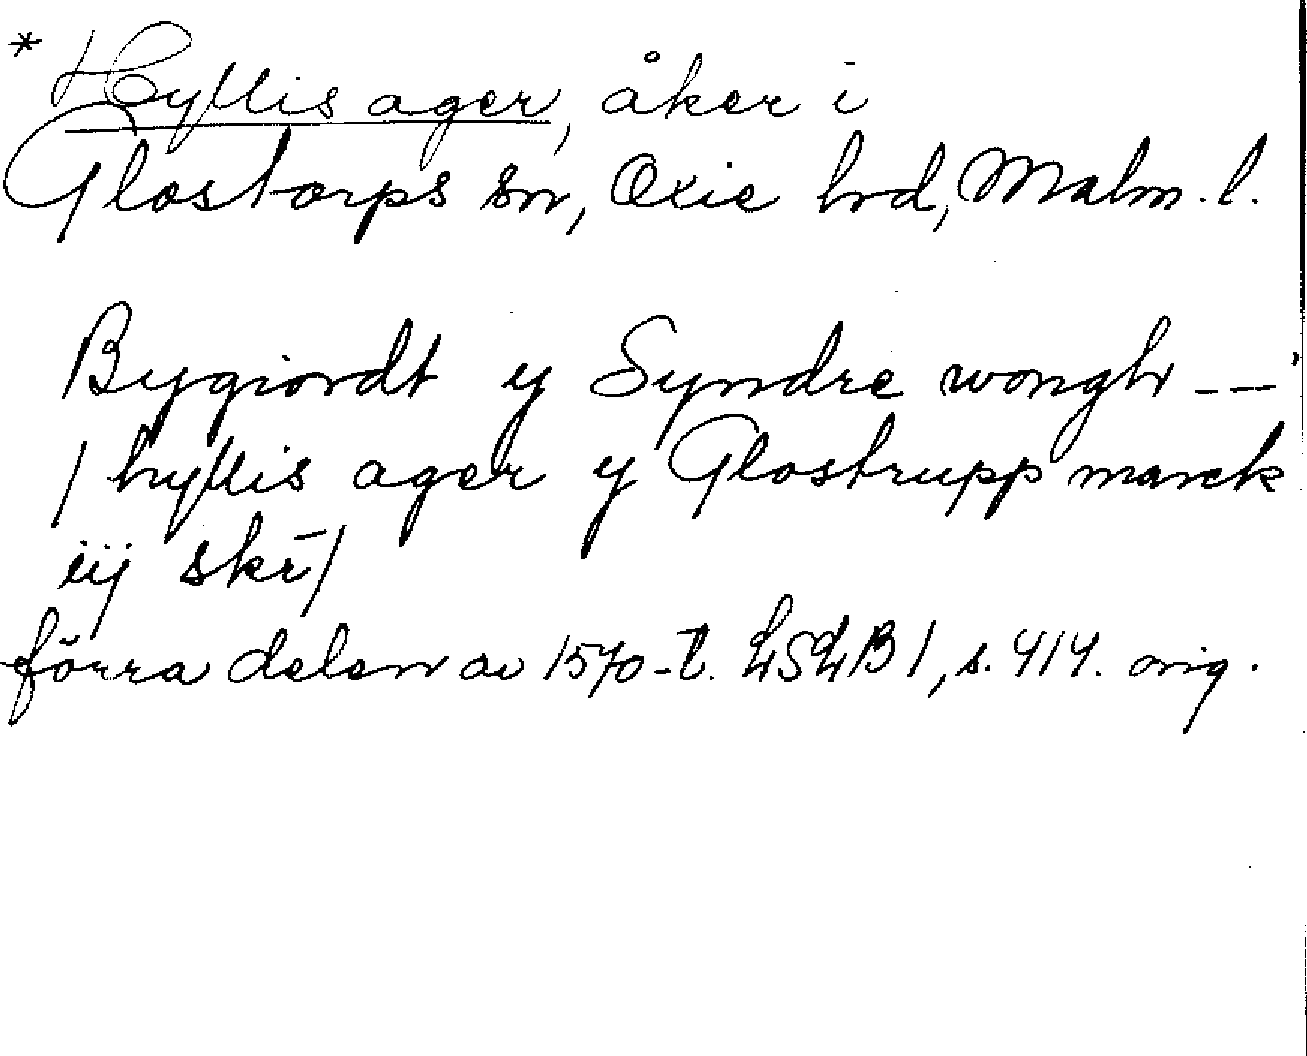 * Hyllis ager, åker i
Glostorps sn, Oxie hd, Malm. l.
Bygiordt y Syndre wongh ---
/ hyllis ager y Glostrupp marck
iij skr̄ /
förra delen av 1570-t. LSLB 1, s. 414. orig.